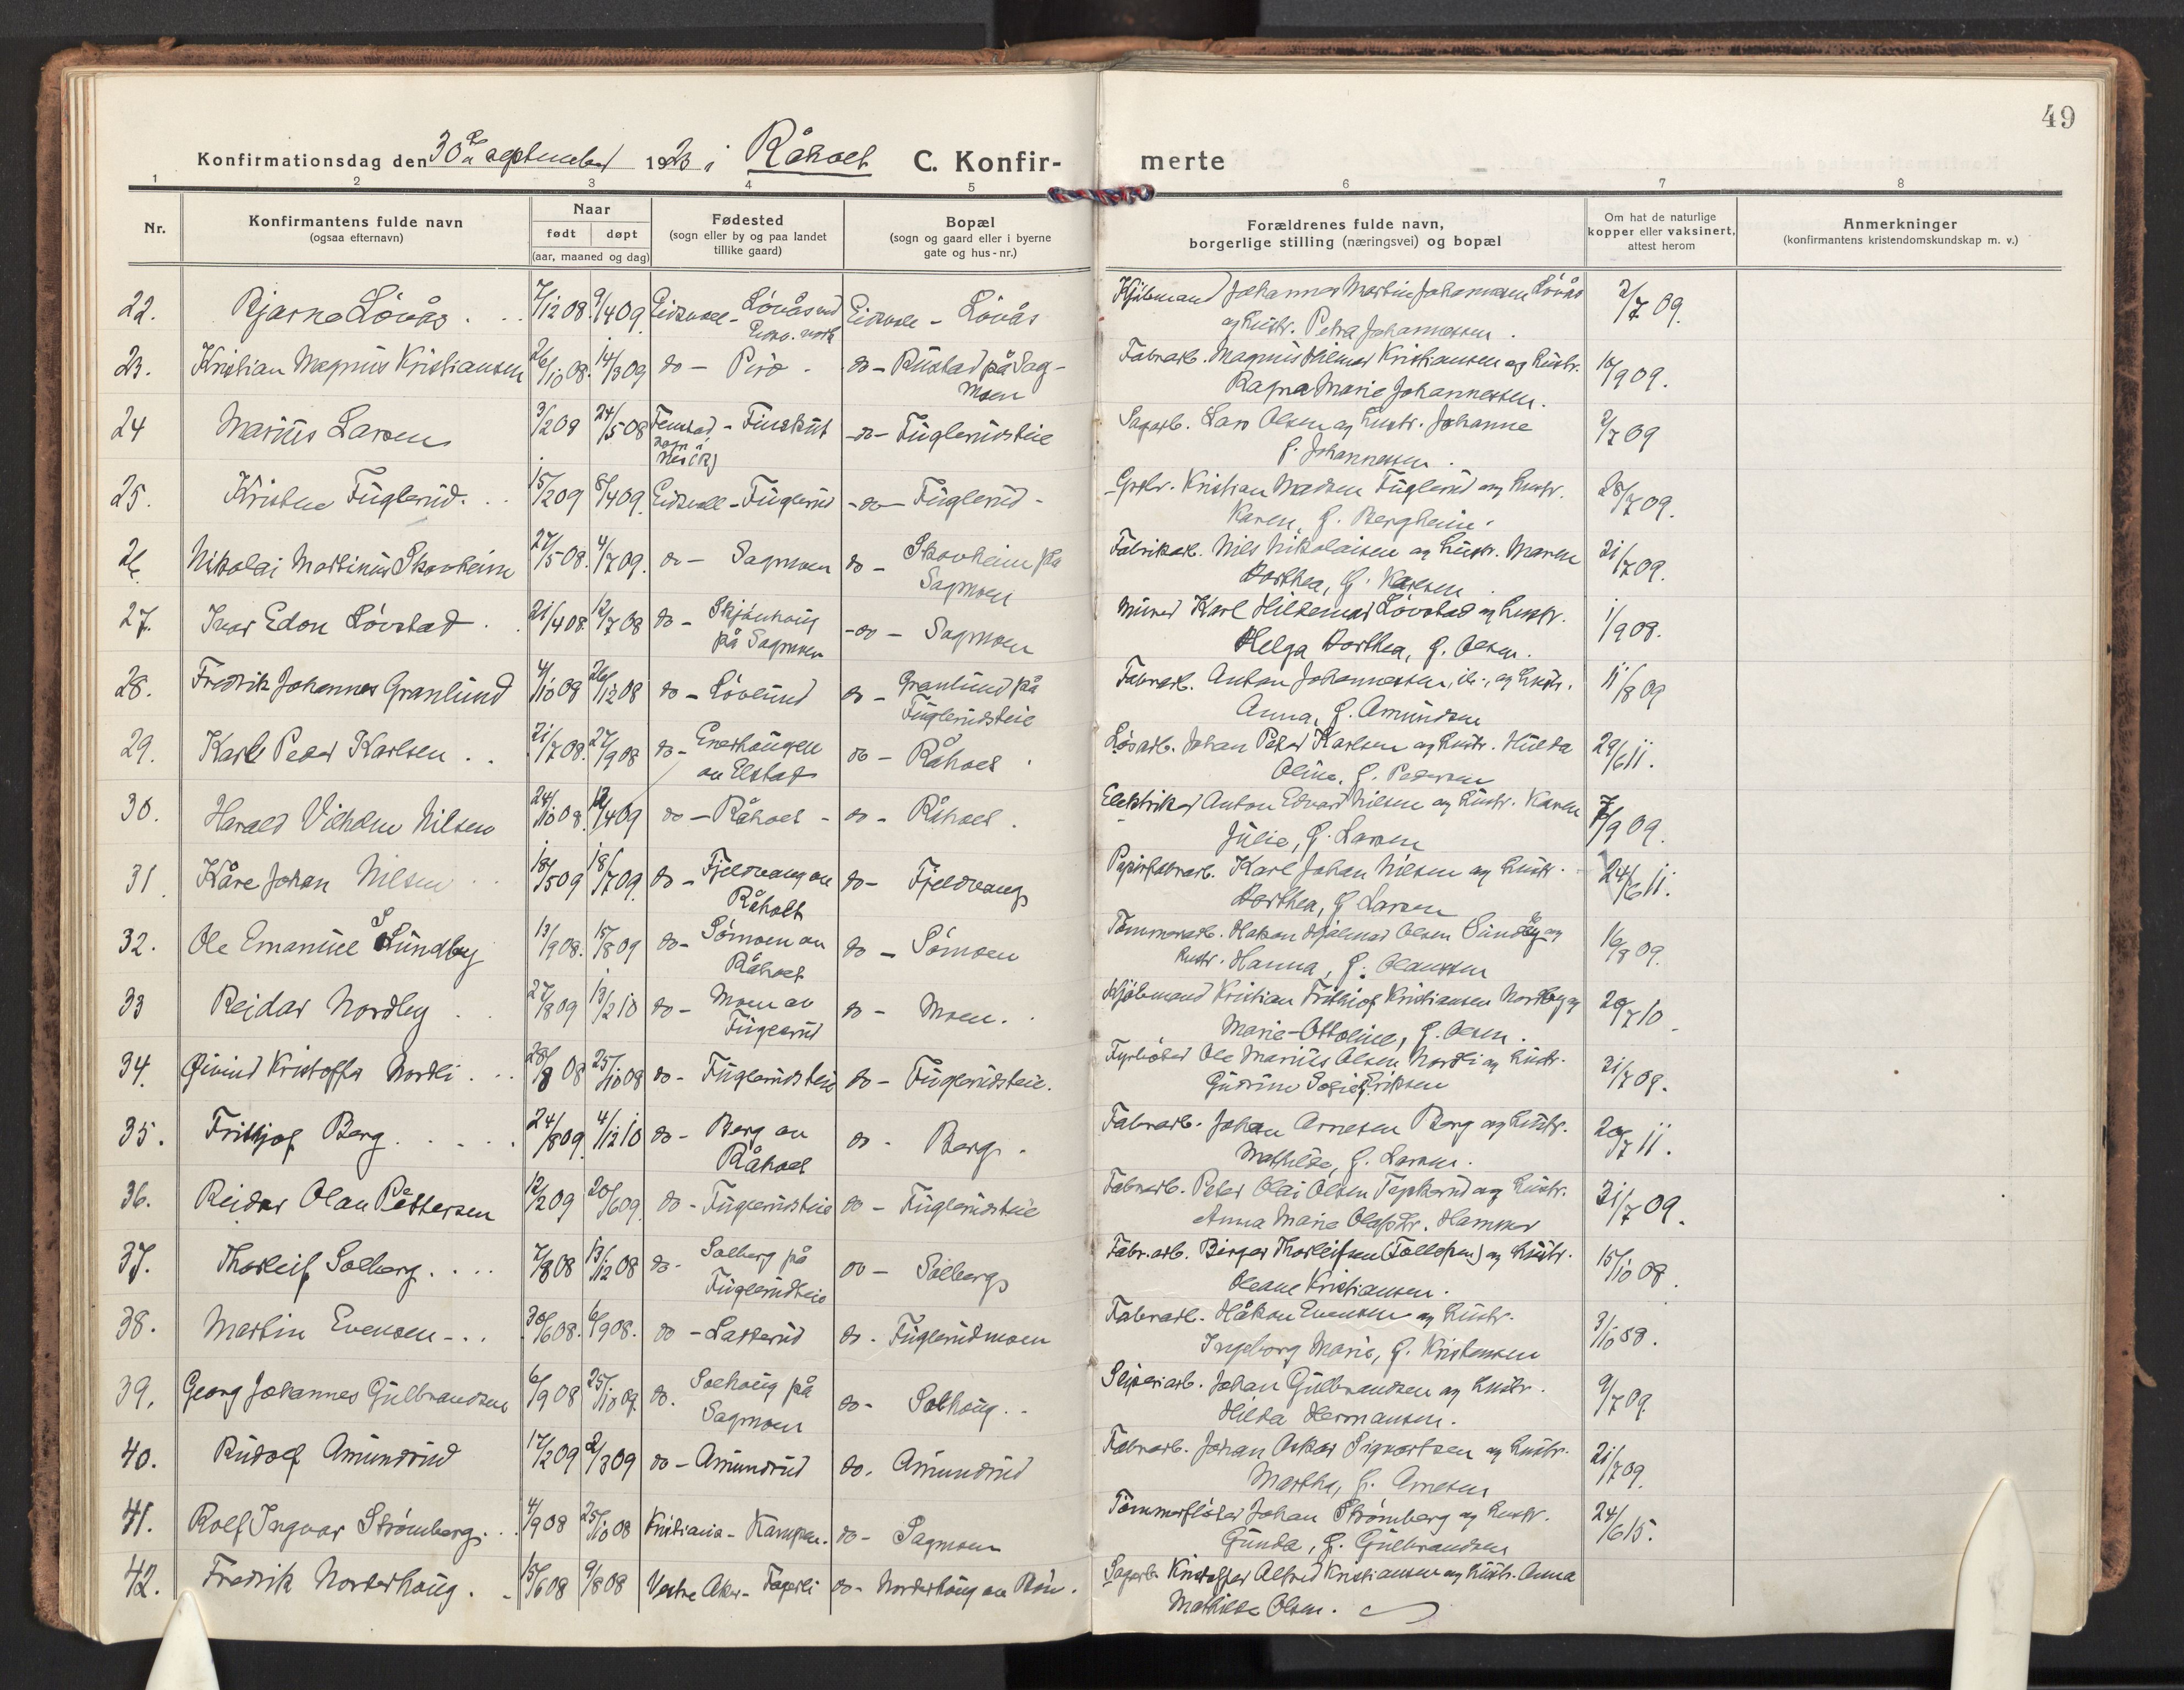 49
Konfirmationsdag den 30te september 1923 i Råholt C. Konfir-merte
1 2 3 4 5 6 7 8
Nr.
Konfirmantens fulde navn
(ogsaa efternavn)
Naar
født døpt
(aar, maaned og dag)
Fødested
(sogn eller by og paa landet
tillike gaard)
Bopæl
(sogn og gaard eller i byerne
gate og hus-nr.)
Forældrenes fulde navn,
borgerlige stilling (næringsvei) og bopæl
Om hat de naturlige
kopper eller vaksinert,
attest herom
Anmerkninger
(konfirmantens kristendomskundskap m. v.)
22. Bjarne Lövås . . 7/12 08. 9/4 09. Eidsvoll - Lövås ved Eidsv. verk Eidsvoll - Lövås Kjøbmand Johannes Martin Johannesen Lövås
og hustr. Petra Johannessen . 2/7 09.
23. Kristian Magnus Kristiansen 26/10 08. 14/3 09 do - Pirø - do - Rustad på Sag-
moen Fabrarb. Magnus Hilmar Kristiansen og hustr.
Ragna Marie Johannessen. 10/9 09.
24 Marius Larsen 3/2 09 24/5 08 Fenstad - Finskut -do- Fuglerudsteie Sagarb. Lars Olsen og hustr. Johanne
f. Johannessen . 2/7 09
25. Kristen Fuglerud. . . 15/2 09 8/4 09. Eidsvoll - Fuglerud -do- Fuglerud - Grbr. Kristian Madsen Fuglerud og hustr.
Karen, f. Bergheim. 28/7 09.
26 Nikolai Martinus Skovheim 27/5 08. 4/7 09. do - Sagmoen do - Skovheim på
Sagmoen Fabrikarb. Nils Nikolaisen og hustr. Maren
Dorthea, f. Karlsen . 21/7 09.
27. Ivar Edon Lövstad . . 21/4 08. 12/7 08 do - Skjönhaug
på Sagmoen -do - Sagmoen Murer Karl Hildemar Lövstad og hustr.
Helga Dorthea, f. Olsen. 1/9 08.
28. Fredrik Johannes Granlund 4/10 09 26/12 08 do - Lövlund do - Granlund på
Fuglerudsteie Fabrarb. Anton Johannessen, og hustr.
Anna, f. Amundsen 11/8 09
29. Karl Peder Karlsen . . 21/7 08. 27/9 08 do - Enerhaugen
av Elstad do - Råholt . Lösarb. Johan Peder Karlsen og hustr. Hulda
Oline, f. Pedersen 29/6 11.
30. Harald Vilhelm Nilsen 24/10 08. 12/4 09 do - Råholt - do - Råholt . Elektriker Anton Edvard Nilsen og hustr. Karen
Julie, f. Larsen 7/9 09.
31. Kåre Johan Nilsen . . 18/5 09 18/7 09. do - Fjeldvang av
Råholt do - Fjeldvang Papirfabrarb. Karl Johan Nilsen og hustr.
Dorthea, f. Larsen 24/6 11.
32. Ole Emanuel Sundby 13/9 08. 15/8 09 do - Sömoen av
Råholt do - Sömoen Tömmerarb. Hakon Hjalmar Olsen Sundby og
hustr. Hanna, f. Olaussen 16/8 09.
33 Reidar Nordby . . 27/8 09 13/2 10 do - Moen av
Fuglerud do - Moen. . Kjöbmand Kristian Frithjof Kristiansen Nordby og
Marie-Ottoline, f. Olsen . 29/7 10.
34. Øivind Kristoffer Nordli . . . 28/8 08 25/10 08 do - Fuglerudsteie do - Fuglerudsteie. Fyrböter Ole Marius Olsen Nordli og hustr.
Gudrun Sofie Eriksen 21/7 09.
35. Frithjof Berg . . . . . 24/8 09 4/12 10 do - Berg av
Råholt do - Berg. Fabrarb. Johan Arnesen Berg og hustr.
Mathilde, f. Larsen. 20/7 11.
36. Reidar Olan Pettersen 12/2 09 20/6 09. do - Fuglerudsteie do - Fuglerudsteie Fabrarb. Peter Olai Olsen og hustr.
Anna Marie Olafsdr. Hammer 21/7 09.
37. Thorleif Solberg . . . . 7/8 08 13/12 08 do - Solberg på
Fuglerudteie do - Solberg Fabr.arb. Birger Thorleifsen (Tollefsen) og hustr.
Oleane Kristiansen . 15/10 08.
38. Martin Evensen - . . 30/6 08. 6/9 08. do - Lasserud do. Fuglerudmoen Fabrarb. Håkon Evensen og hustr.
Ingeborg Marie, f. Kristensen 3/10 08.
39. Georg Johannes Gulbrandsen 6/9 08 25/10 09. do. Solhaug på
Sagmoen do - Solhaug . - Sliperiarb. Johan Gulbrandsen og hustr.
Hilda Hermansen. 9/7 09.
40. Rudolf Amundrud 17/2 09 2/3 09 do - Amundrud do. Amundrud Fabrarb. Johan Oskar Sigvartsen og hustr.
Martha, f. Arnesen 21/7 09.
41. Rolf Ingvar Strömberg . . . 4/9 08 25/10 08 Kristiania - Kampen. do - Sagmoen Tömmerflöter Johan Strömberg og hustr.
Gunda, f. Gulbrandsen 24/6 15.
42. Fredrik Norderhaug . - 15/6 08 9/8 08 Vestre Aker - Fagerli do - Norderhaug av Bön . Sagarb. Kristoffer Alfred Kristiansen og hustr. Anna
Mathilde Olsen.